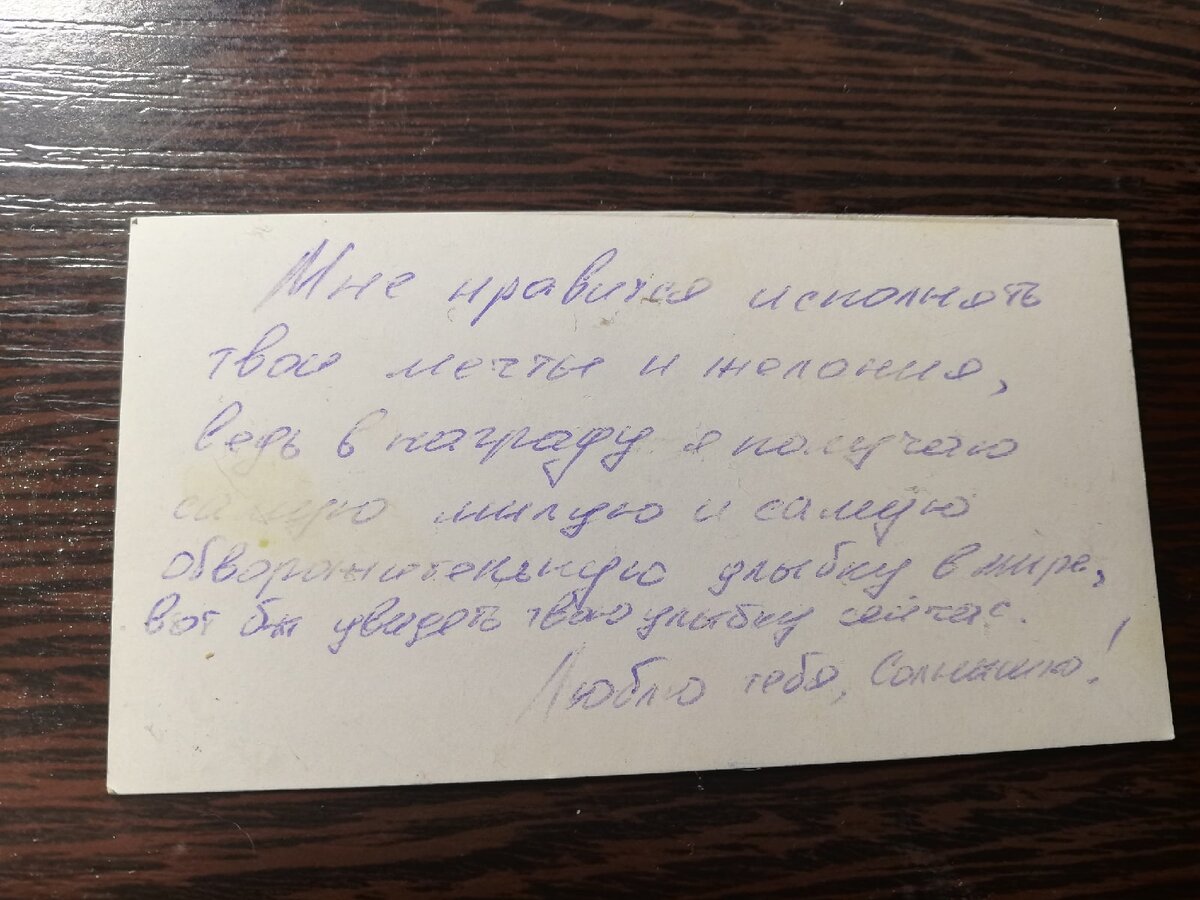 Мне нравится исполнять
твои мечты и желания,
ведь в награду я получаю
самую милую и самую
обворожительную улыбку в мире,
вот бы увидеть твою улыбку сейчас.
Люблю тебя, Солнышко!